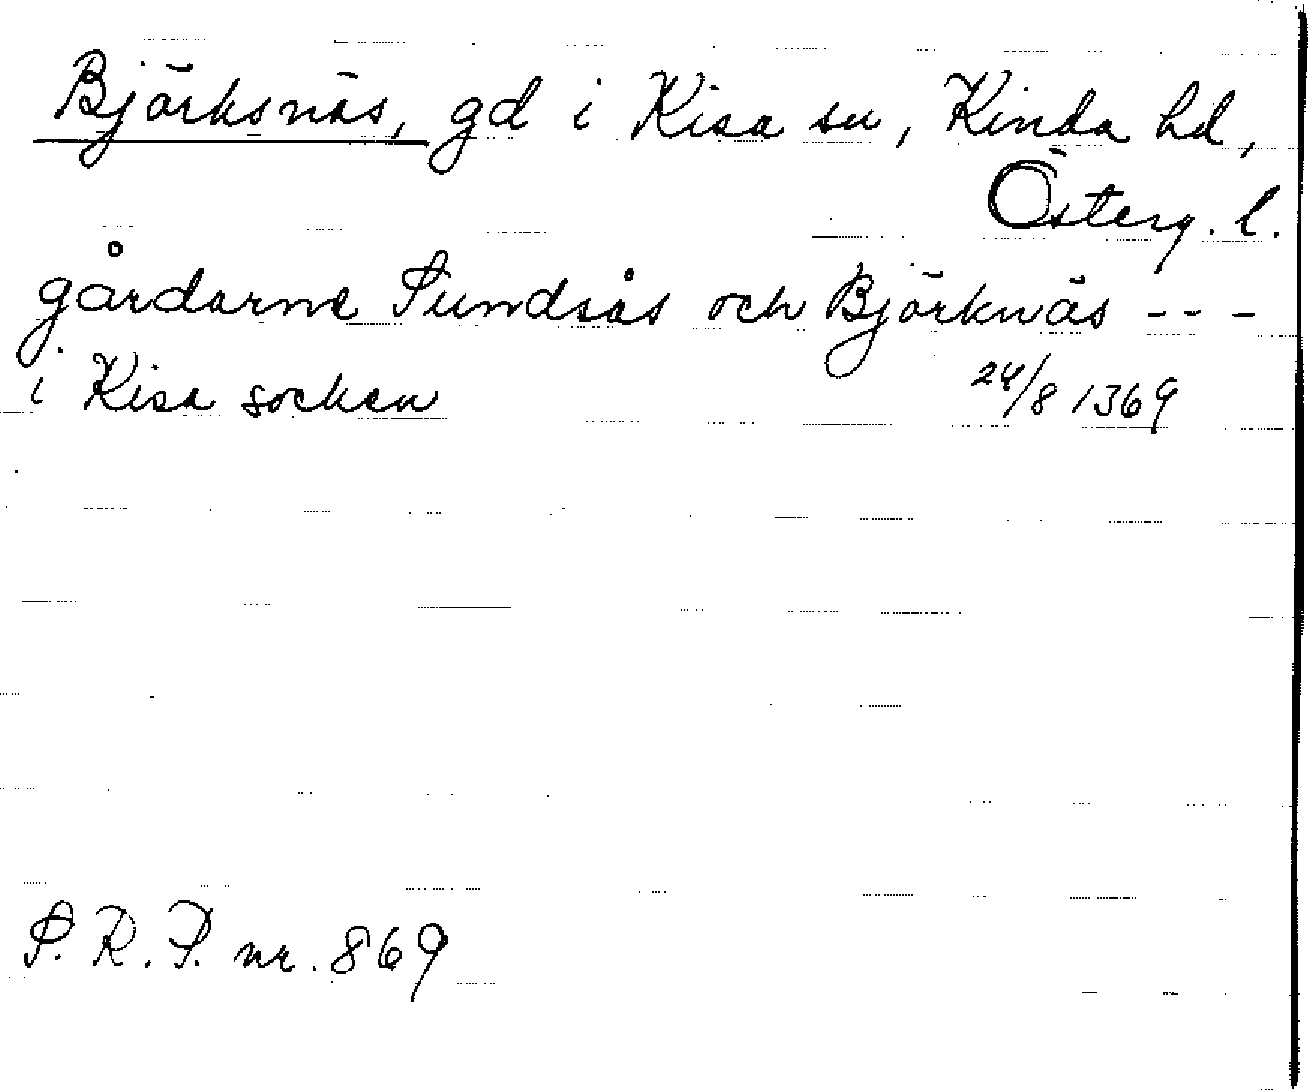 Björksnäs, gd i Kisa sn, Kinda hd,
Österg. l.
gårdarne Sundsås och Björknäs - - -
i Kisa socken 24/8 1369
S. R. P. nr. 869